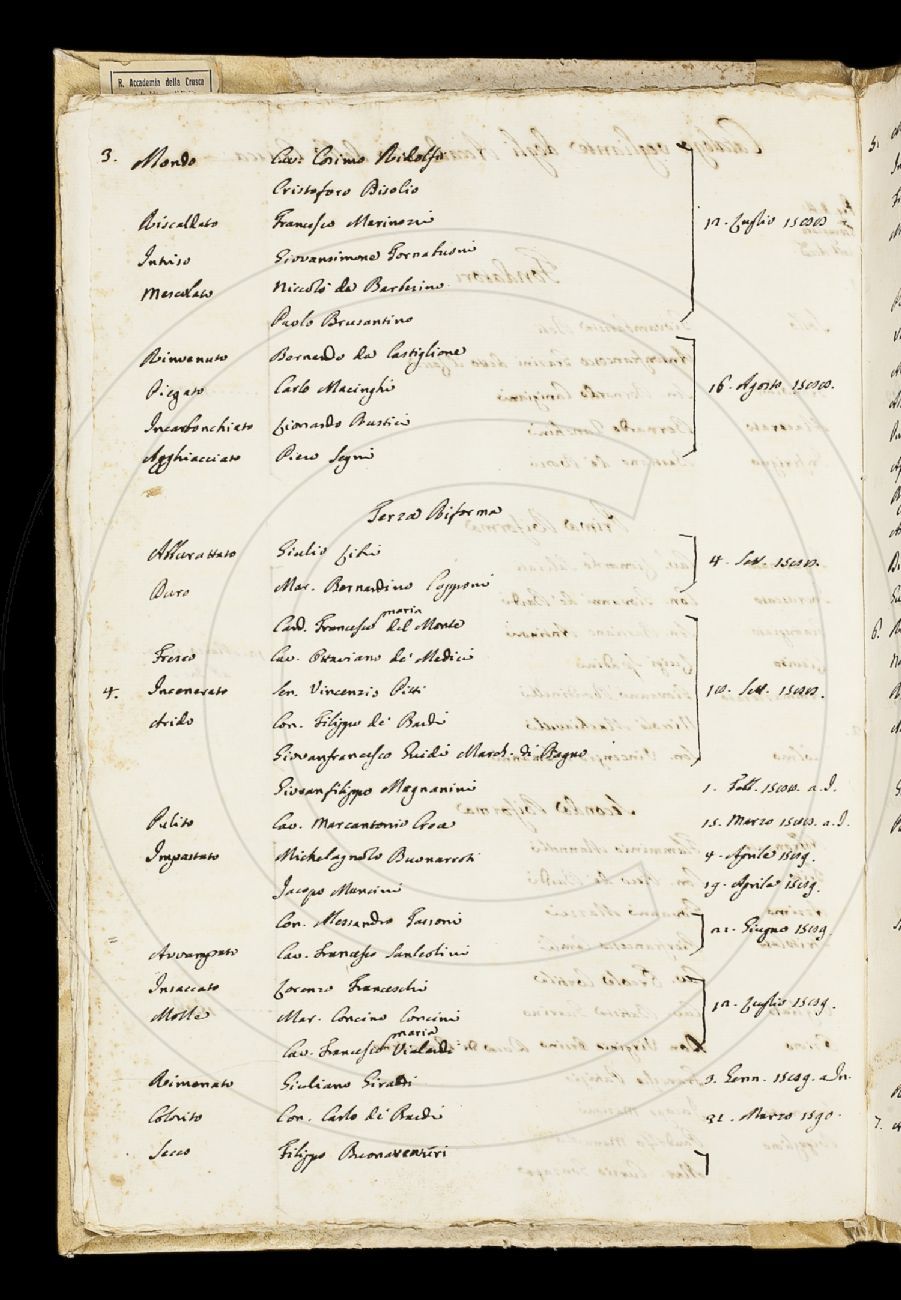 R. Accademia della Crusca
3. Mondo Cav. Cosimo Ridolfi
Cristoforo Bisolio
Riscaldato Francesco Marinozzi 12. Luglio 1588
Intriso Giovansimone Tornabuoni
Mescolato Niccolò da Barberino
Paolo Brusantino
Rinvenuto Bernardo da Castiglione
Piegato Carlo Macinghi 16. Agosto 1588.
Incarbonchiato Lionardo Rustici
Agghiacciato Piero Segni
Terza Riforma
Assurattato Giulio Libri 4. Sett. 1588.
Duro Mar. Bernardino Capponi
Card. Francesco maria del Monte
Fresco Cav. Ottaviano de' Medici
4. Incenerato Sen. Vincenzio Pitti 10. Sett. 1588.
Arido Con. Filippo de' Bardi
Giovanfrancesco Guidi March. di Bagno
Giovanfilippo Magnanini 1. Febb. 1588. a. I.
Pulito Cav. Marcantonio 15. Marzo 1588. a. I.
Impastato Michelagnolo Buonarroti 4. Aprile 1589.
Jacopo Mancini 19. Aprile 1589.
Con. Alessandro Tassoni 21. Giugno 1589.
Avvampato Cav. Francesco Sanleolini
Insaccato Lorenzo Franceschi
Molle Mar. Concino Concini 12. Luglio 1589.
Cav. Francesco maria Vialardi
Rimenato Giuliano Giraldi 3. Genn. 1589. a In.
Colorito Con. Carlo de' Bardi 21. Marzo 1590.
Secco Filippo Buonaventuri
5.
6.
7.